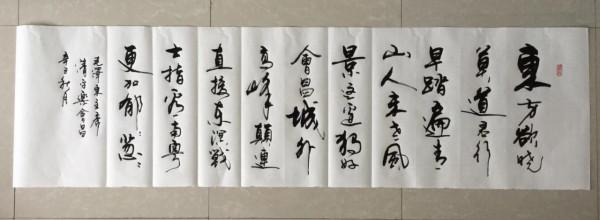 東方欲晓
莫道君行
早踏遍青
山人未老风
景这边独好
會昌城外
高峰顛連
直接东溟戰
士指看南粤
更加郁々葱々
毛澤東主席
清平樂會昌
辛丑秋月